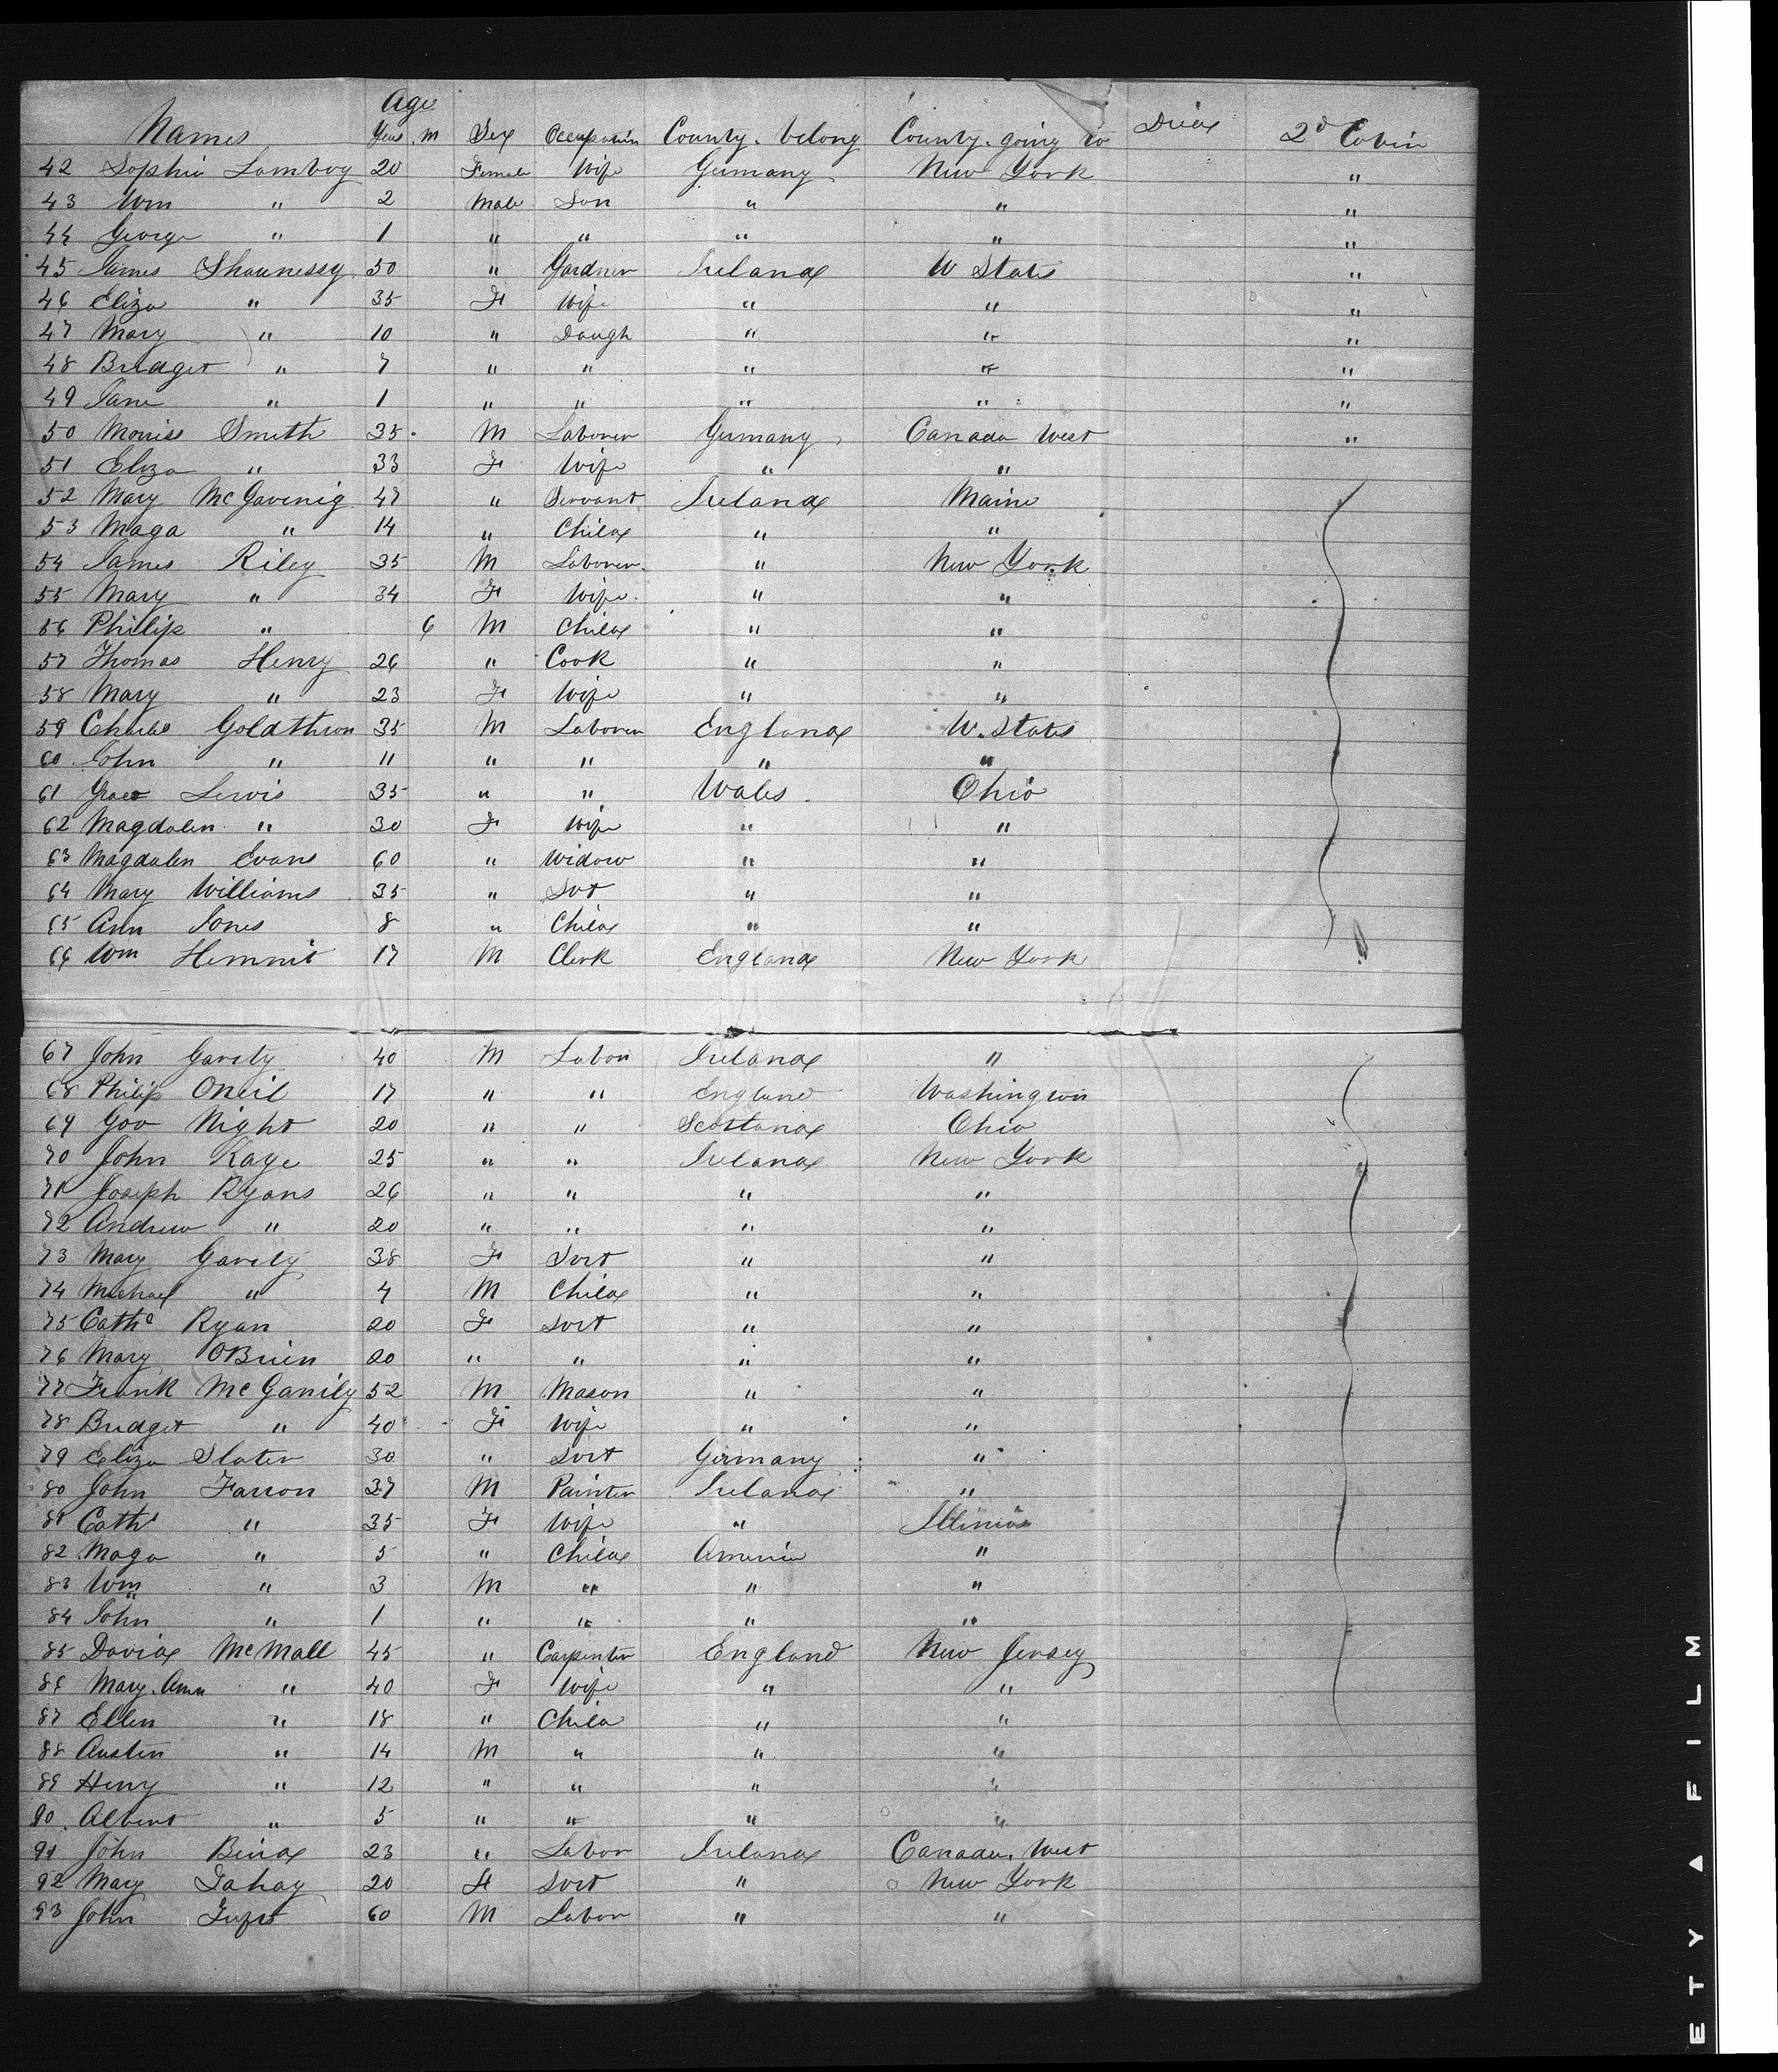 Age
Names Years M Sex Occupation County belong County going to Died 2d Cabin
42 Sophia Lamboy 20 Female Wife Germany New York "
43 Wm " 2 Male Son " " "
44 George " 1 " " " " "
45 James Shaunessy 50 " Gardner Ireland W States "
46 Eliza " 35 F Wife " " "
47 Mary " 10 " Daugh " " "
48 Bridget " 7 " " " " "
49 Jane " 1 " " " " "
50 Morriss Smith 35 M Laborer Germany Canada West "
51 Eliza " 33 F Wife " "
52 Mary McGavenig 47 " Servant Ireland Maine
53 Maga " 14 " Child " "
54 James Riley 35 M Laborer " New York
55 Mary " 34 F Wife " "
56 Philip " 6 M Child " "
57 Thomas Henry 26 " Cook " "
58 Mary " 23 F Wife " "
59 Charles Goldthron 35 M Laborer England W. States
60 John " 11 " " " "
61 Lewis 35 " " Wales Ohio
62 Magdalen " 30 F Wife " "
63 Magdalen Evans 60 " Widow " "
64 Mary Williams 35 " Svt " "
65 Ann Jones 8 " Child " "
66 Wm Hemmit 17 M Clerk England New York
67 John Garety 40 M Labor Ireland "
68 Philip ONeil 17 " " England Washington
69 Geo Night 20 " " Scotland Ohio
70 John Kage 25 " " Ireland New York
71 Joseph Ryans 26 " " " "
72 Andrew " 20 " " " "
73 Mary Garety 38 F Svt " "
74 Michael " 4 M Child " "
75 Cathe Ryan 20 F Svt " "
76 Mary OBrien 20 " " " "
77 Frank McGanily 52 M Mason " "
78 Bridget " 40 F Wife " "
79 Eliza Slater 30 " Svt Germany "
80 John Farron 37 M Painter Ireland "
81 Cathe " 35 F Wife " Illinois
82 Maga " 5 " Child America "
83 Wm " 3 M " " "
84 John " 1 " " " "
85 David McMall 45 " Carpenter England New Jersey
86 Mary Ann " 40 F Wife " "
87 Ellen " 18 " Child " "
88 Austin " 14 M " " "
89 Henry " 12 " " " "
90 Albert " 5 " " " "
91 John Bird 23 " Labor Ireland Canada West
92 Mary Gahay 20 F Svt " New York
93 John 60 M Labor " "
ETY ▲ FILM